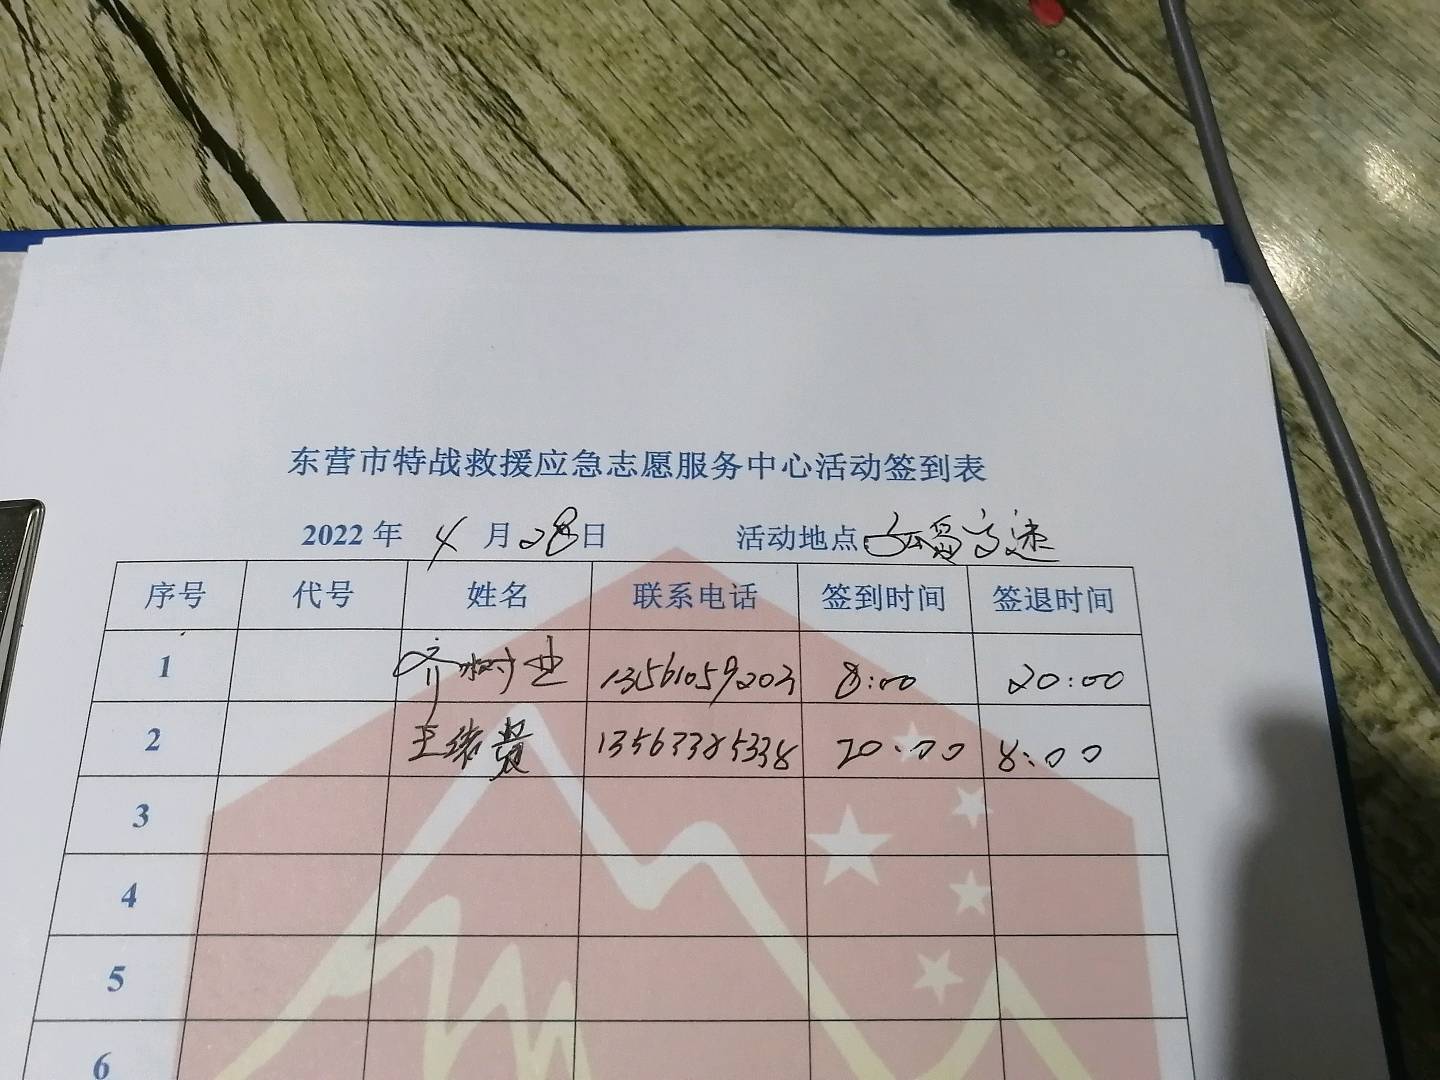 东营市特战救援应急志愿服务中心活动签到表
2022 年 4 月 28 日 活动地点 高速
序号 代号 姓名 联系电话 签到时间 签退时间
1 齐树 13561059203 8:00 20:00
2 王 13563385338 20:00 8:00
3
4
5
6